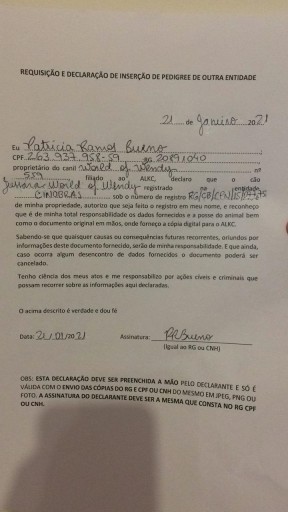 REQUISIÇÃO E DECLARAÇÃO DE INSERÇÃO DE PEDIGREE DE OUTRA ENTIDADE
21 de Janeiro 2021
Eu Patricia Ramos Bueno
CPF 263.937.958-59 RG 20891040
proprietário do canil World of Wendy nº
559 filiado ao ALKC, declara que o cão
Jussara World of Wendy registrado na entidade
CINOBRAS sob o número de registro
de minha propriedade, autorizo que seja feito o registro em meu nome, e reconheço
que é de minha total responsabilidade os dados fornecidos e a posse do animal bem
como o documento original em mãos, onde forneço a cópia digital para o ALKC.
Sabendo se que quaisquer causas ou consequências futuras recorrentes, oriundas por
informações deste documento fornecido, serão de minha responsabilidade. E que ainda,
caso ocorra algum desencontro de dados fornecidos o documento poderá ser
cancelado.
Tenho ciência dos meus atos e me responsabilizo por ações cíveis e criminais que
possam recorrer sobre as informações aqui declaradas.
O acima descrito é verdade e dou fé
Data: 21/01/2021 Assinatura: PRBueno
(Igual ao RG ou CNH)
OBS: ESTA DECLARAÇÃO DEVE SER PREENCHIDA A MÃO PELO DECLARANTE E SÓ É
VÁLIDA COM O ENVIO DAS CÓPIAS DO RG E CPF OU CNH DO MESMO EM JPEG, PNG OU
FOTO. A ASSINATURA DO DECLARANTE DEVE SER A MESMA QUE CONSTA NO RG CPF
OU CNH.